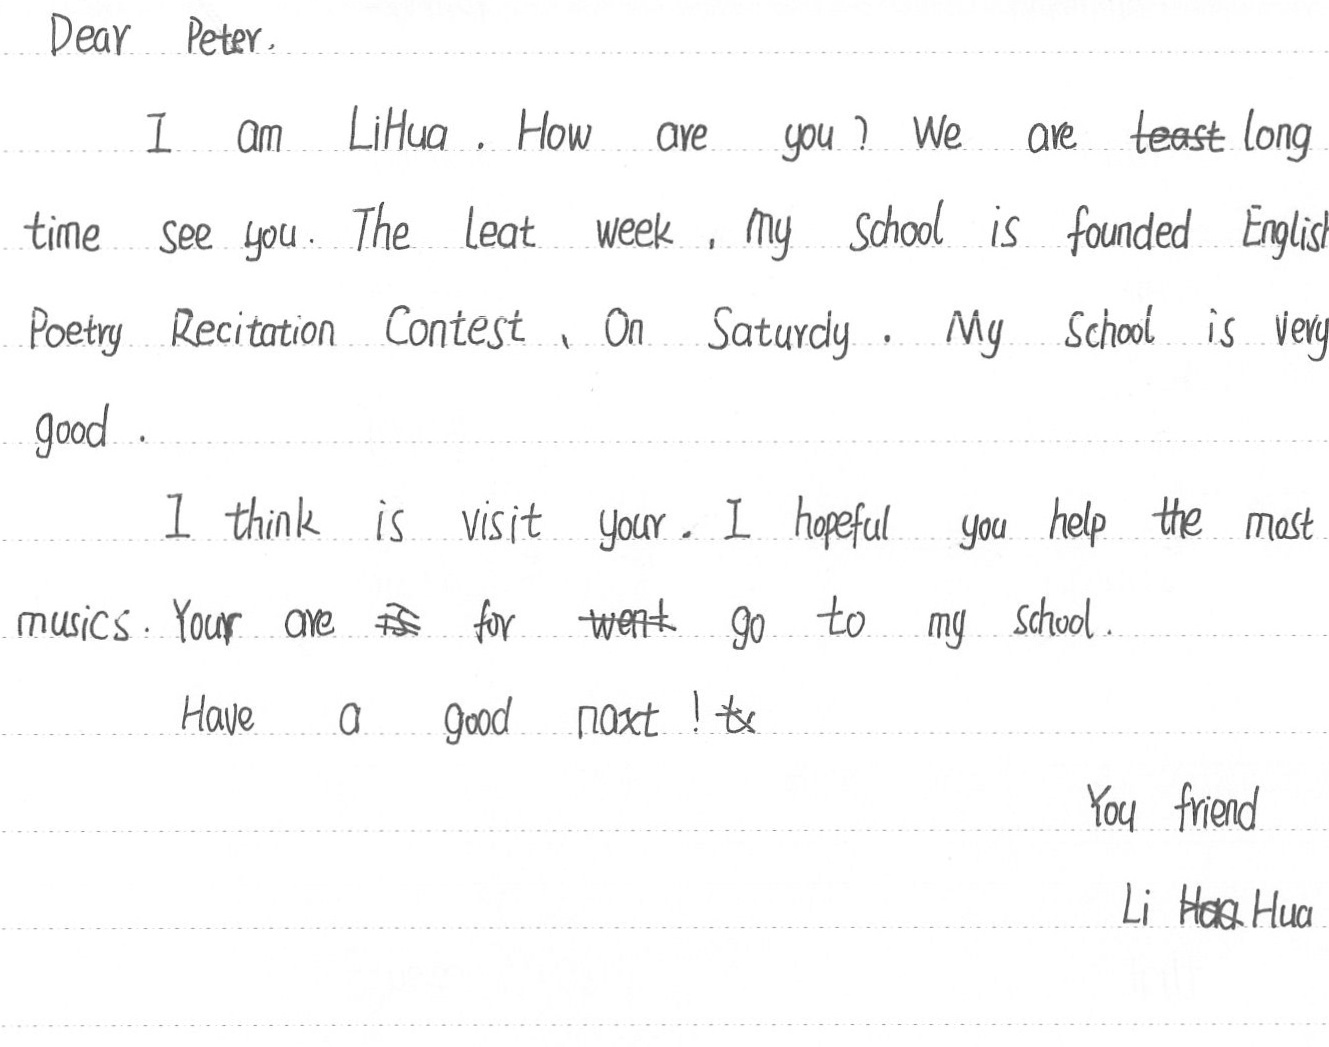 Dear Peter.
I am LiHua. How are you? We are teast long
time see you. The leat week, my school is founded English
Poetry Recitation Contest、On Saturdy. My School is very
good.
I think is visit your. I hopeful you help the most
musics. Your are is for went go to my school.
Have a good naxt! tx
You friend
Li Haa Hua